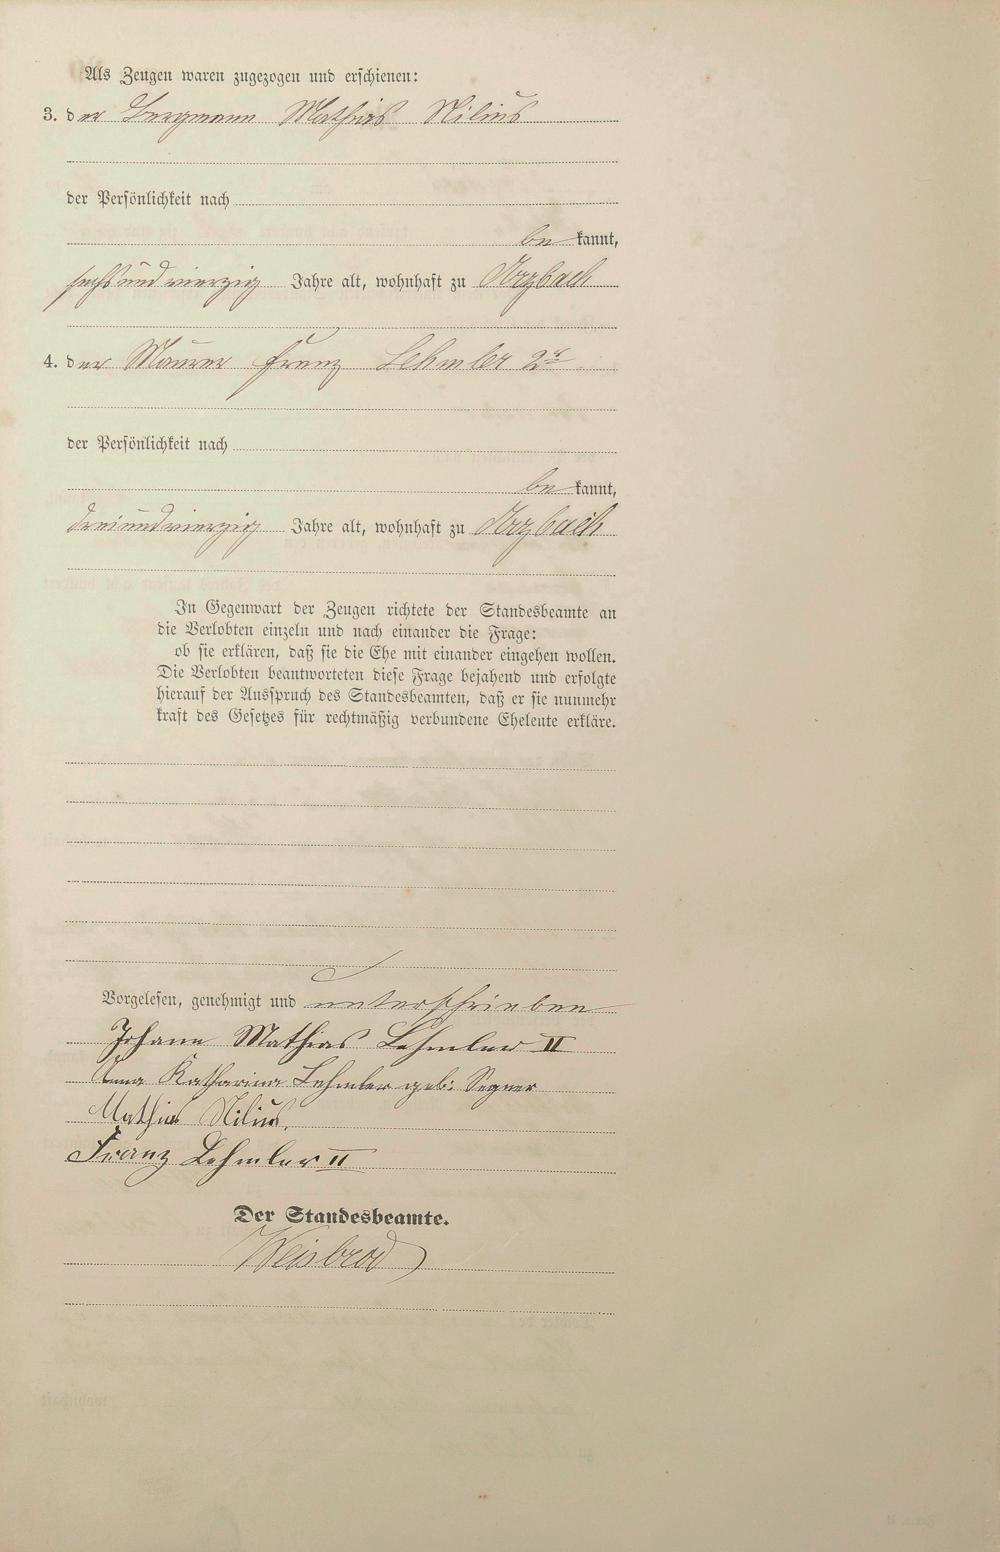 Als Zeugen waren zugezogen und erschienen:
3. der Bergmann Mathias Nilius
der Persönlichkeit nach
bekannt,
sechsundvierzig Jahre alt, wohnhaft zu Arzbach
4. der Maurer Franz Lehmler 2r
der Persönlichkeit nach
bekannt,
dreiundvierzig Jahre alt, wohnhaft zu Arzbach
In Gegenwart der Zeugen richtete der Standesbeamte an
die Verlobten einzeln und nach einander die Frage:
ob sie erklären, daß sie die Ehe mit einander eingehen wollen.
Die Verlobten beantworteten diese Frage bejahend und erfolgte
hierauf der Ausspruch des Standesbeamten, daß er sie nunmehr
kraft des Gesetzes für rechtmäßig verbundene Eheleute erkläre.
Vorgelesen, genehmigt und unterschrieben
Johann Mathias Lehmler II
Anna Katharina Lehmler geb: Segner
Mathias Nilius.
Franz Lehmler II
Der Standesbeamte.
Weisbrod